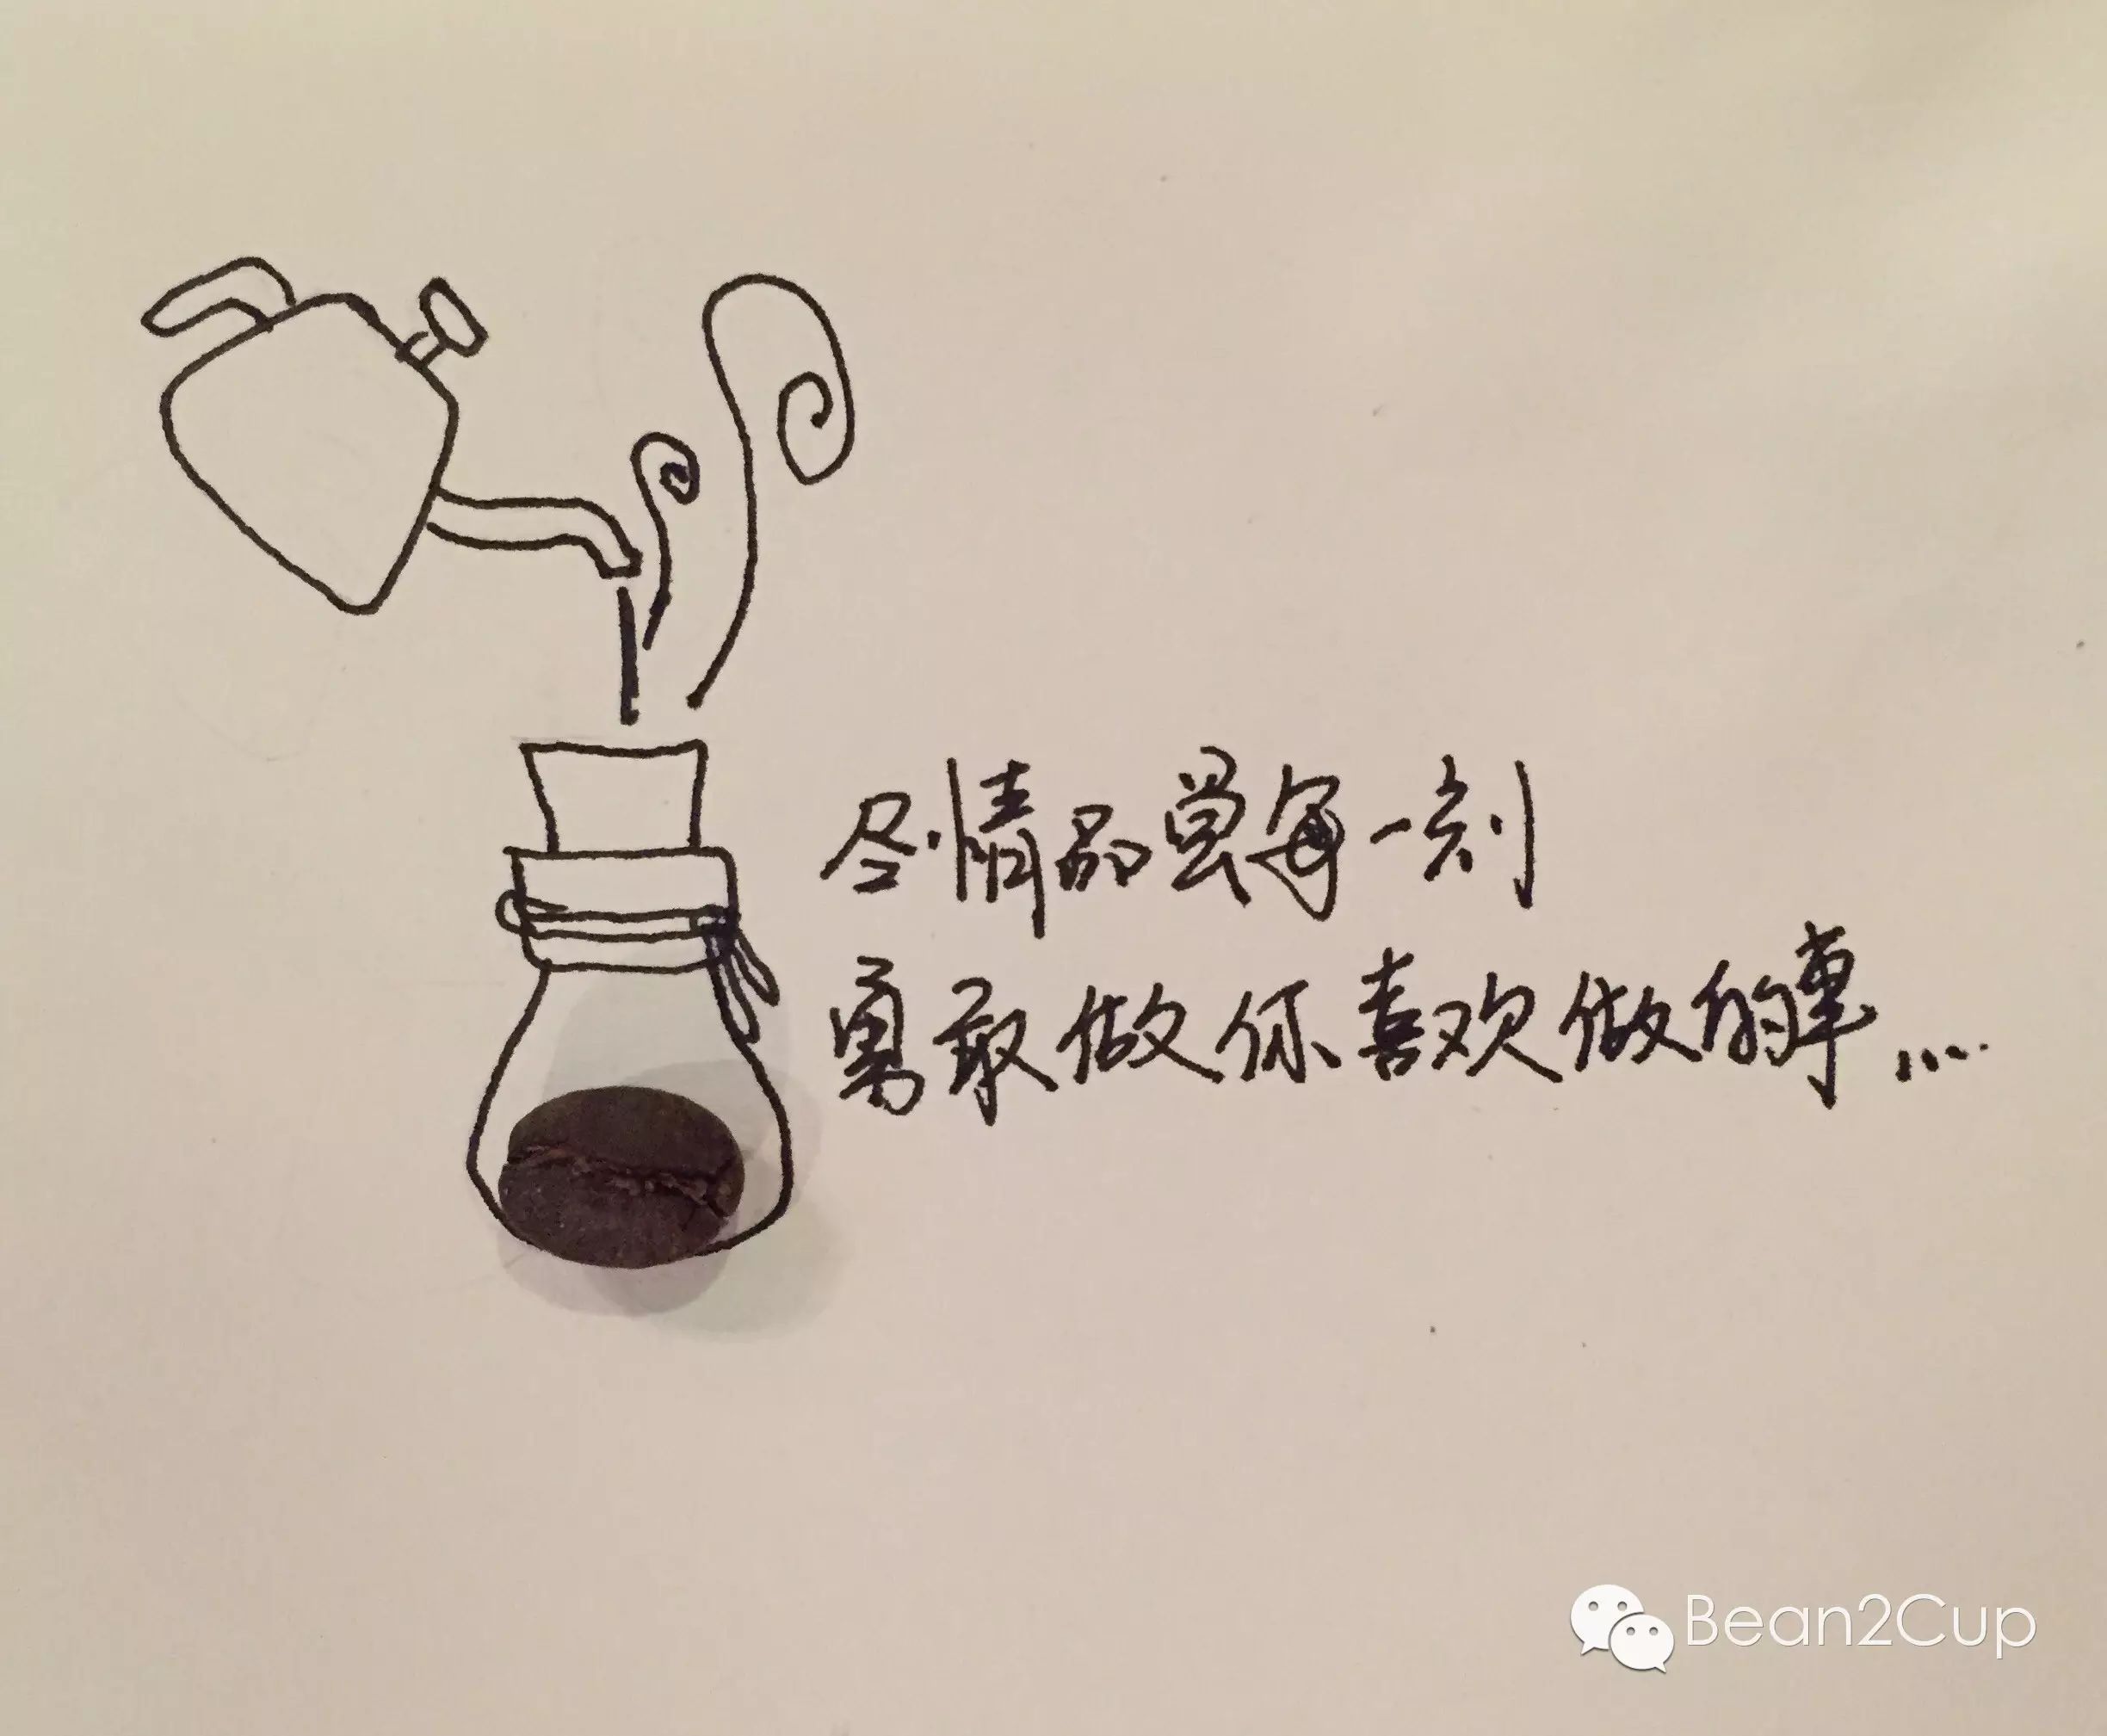 尽情品尝每一刻
勇敢做你喜欢做的事...
Bean2Cup